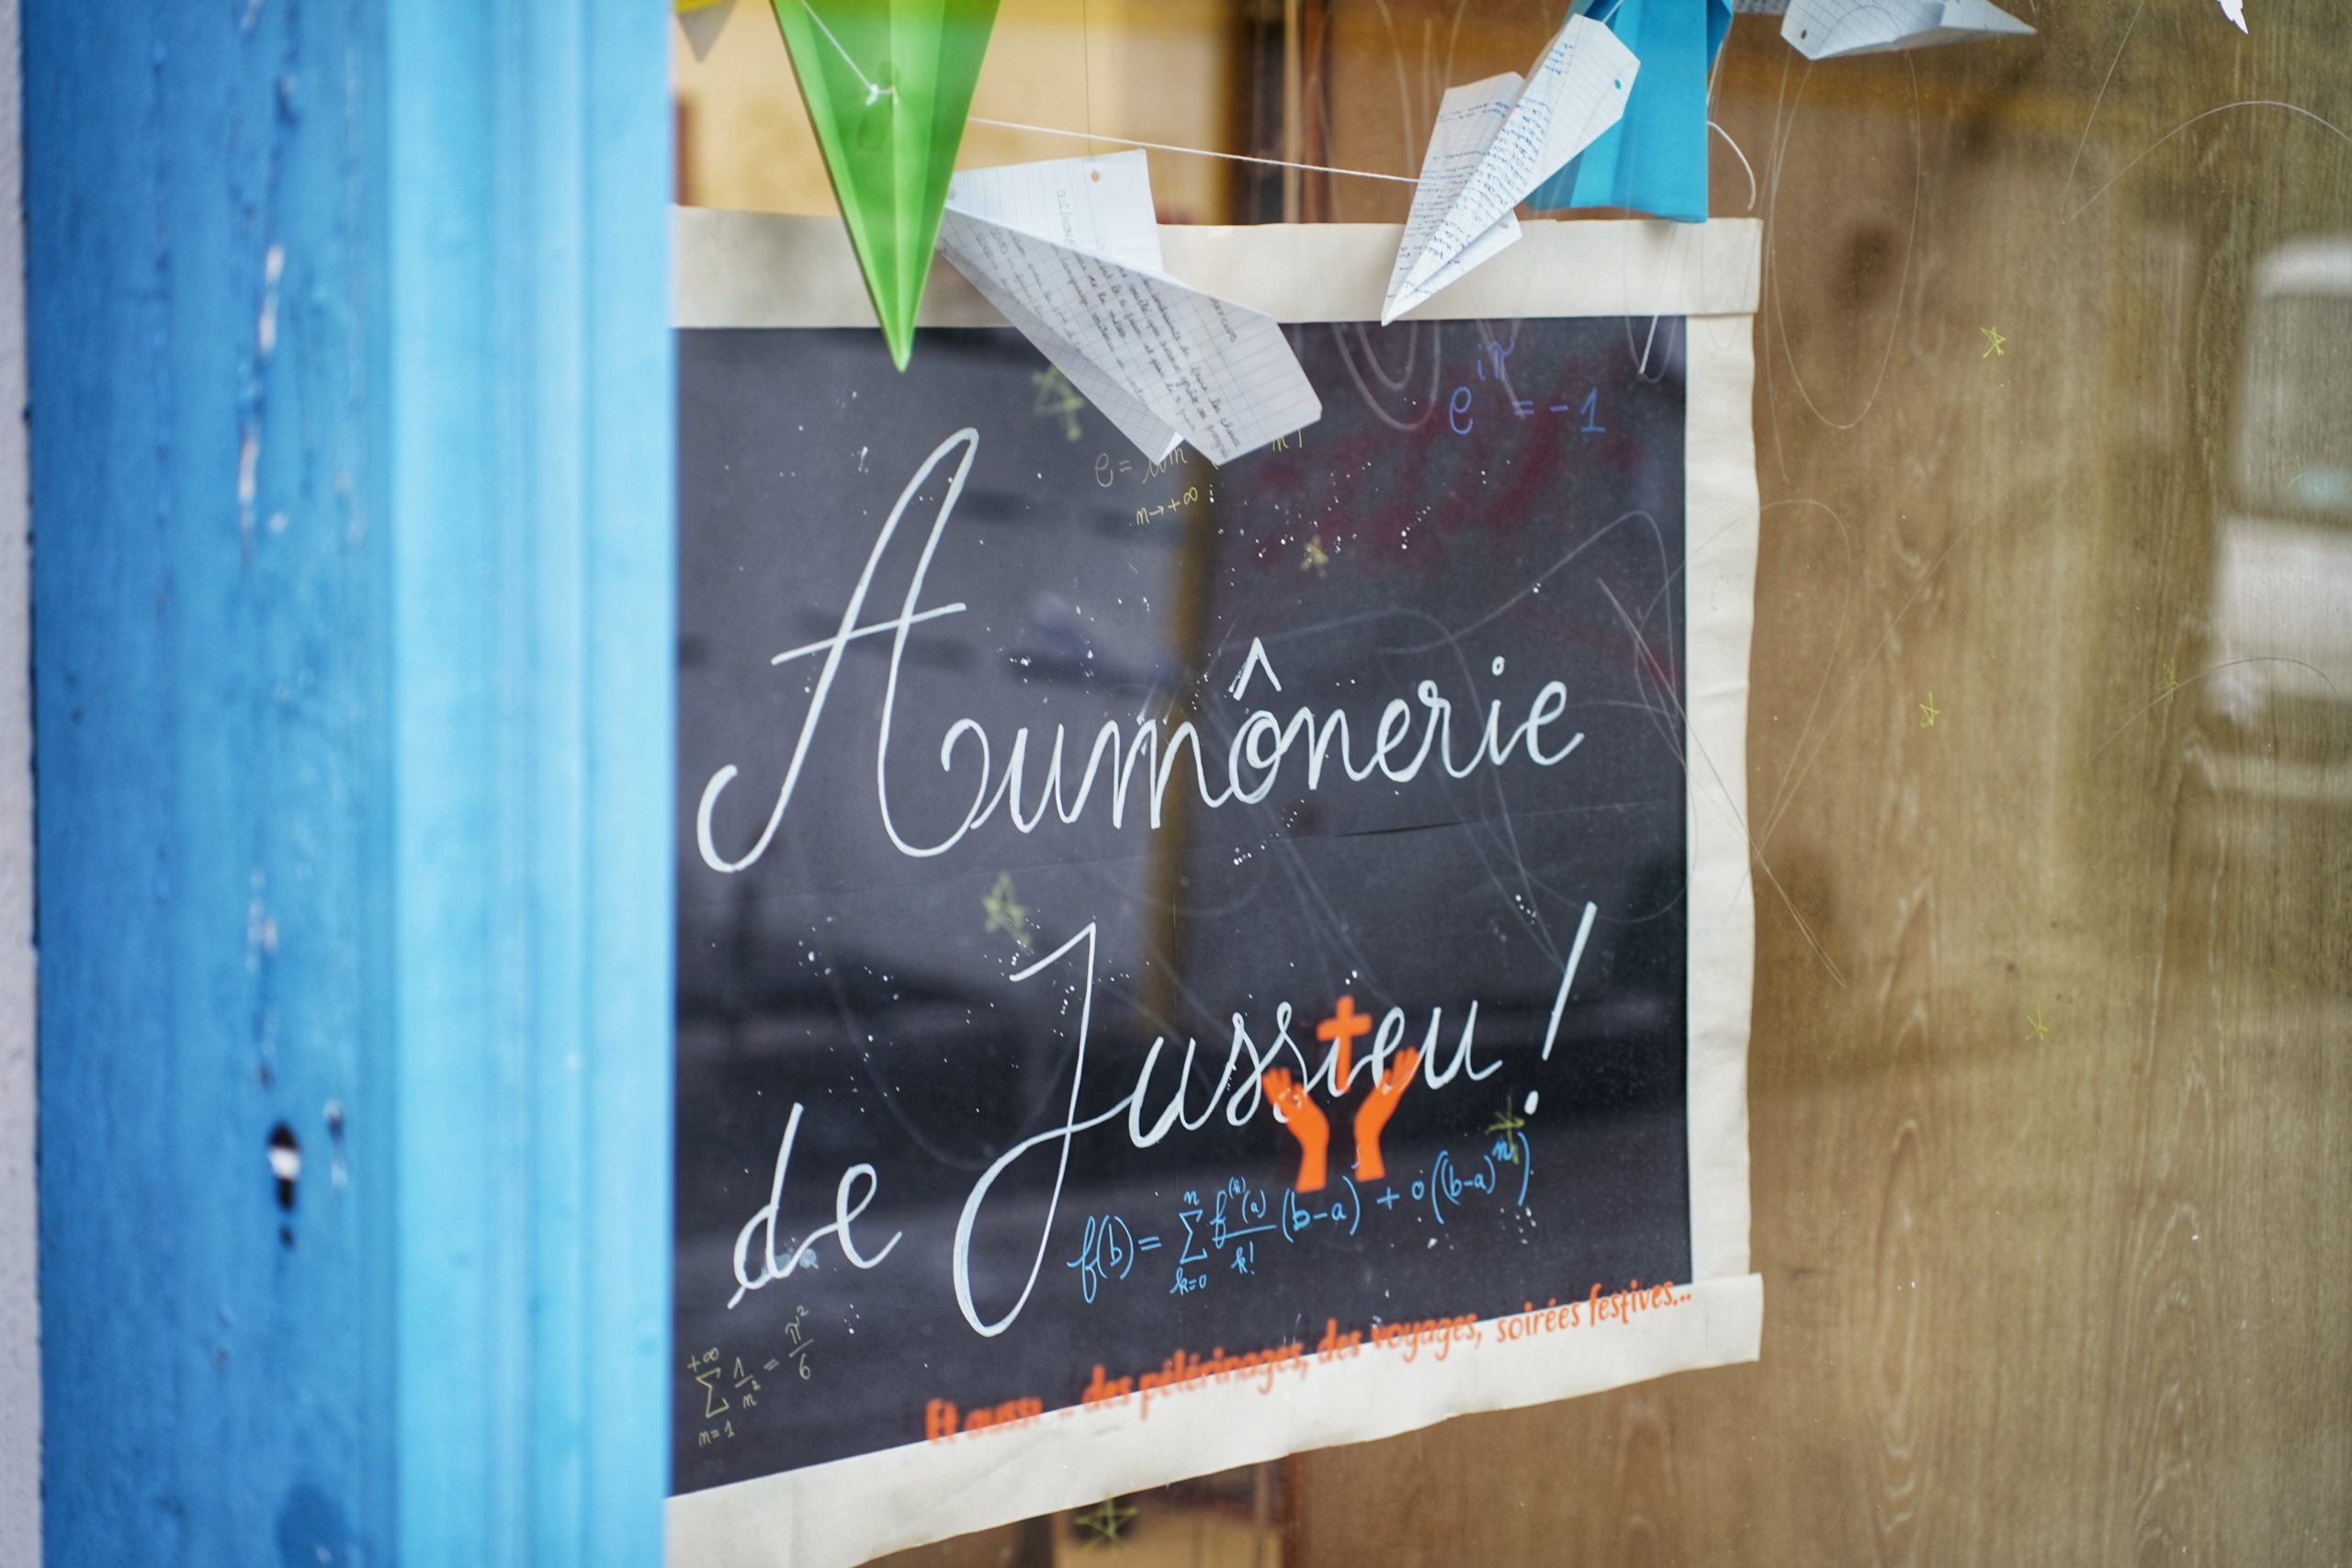 e^{iπ} = -1
e = lim
n→+∞
n!
Aumônerie
de Jussieu !
f(b) = \sum_{k=0}^{n} \frac{f^{(k)}(a)}{k!} (b-a) + o((b-a)^n)
\sum_{n=1}^{+∞} \frac{1}{n^2} = \frac{π^2}{6}
Et aussi ... des pélérinages, des voyages, soirées festives...